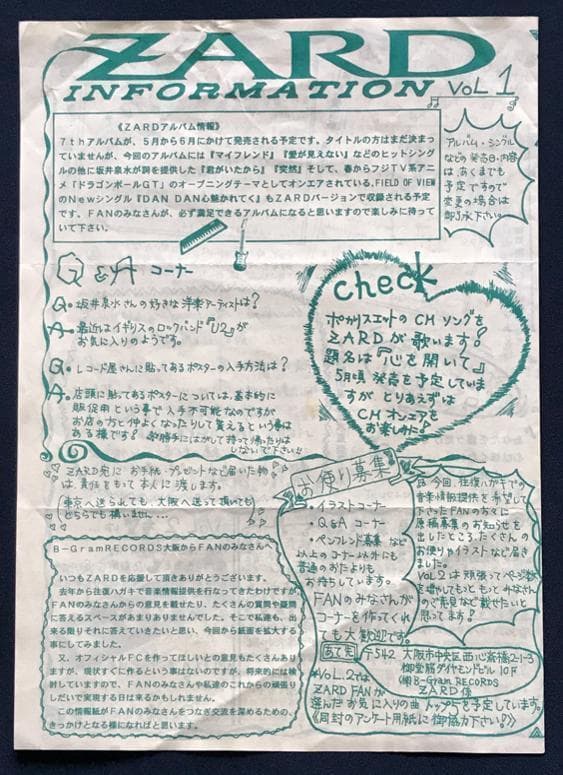 ZARD
INFORMATION VOL 1
《ZARDアルバム情報》
7thアルバムが、5月から6月にかけて発売される予定です。タイトルの方はまだ決まっ
ていませんが、今回のアルバムには『マイフレンド』『愛が見えない』などのヒットシング
ルの他に坂井泉水が詞を提供した『君がいたから』『突然』そして、春からフジTV系アニ
メ「ドラゴンボールGT」のオープニングテーマとしてオンエアされている,FIELD OF VIEW
のNewシングル『DAN DAN心魅かれてく』もZARDバージョンで収録される予定
です。FANのみなさんが、必ず満足できるアルバムになると思いますので楽しみに待って
いて下さい。
アルバム・シングル
などの発売日・内容
はあくまでも
予定ですので
変更の場合は
御了承下さい。
Q&A コーナー
Q. 坂井泉水さんの好きな洋楽アーティストは?
A. 最近はイギリスのロックバンド『U2』が
お気に入りのようです。
Q. レコード屋さんに貼ってあるポスターの入手方法は?
A. 店頭に貼ってあるポスターについては、基本的に
販促用という事で入手不可能なのですが
お店の方と仲よくなったりして貰えるという事は
ある様です! 勝手にはがして持って帰ったりは
しないで下さい!!
check
ポカリスエットのCMソングを
ZARDが歌います!
題名は『心を開いて』
5月頃発売を予定していま
すが とりあえずは
CMオンエアを
お楽しみに!
ZARD宛にお手紙・プレゼントなど届いた物
は責任をもって本人に渡します。
東京へ送られても、大阪へ送って頂いても
どちらでも構いません…
B-GramRECORDS大阪からFANのみなさんへ
いつもZARDを応援して頂きありがとうございます。
去年から往復ハガキで音楽情報提供を行なってきたわけですが
FANのみなさんからの意見を載せたり、たくさんの質問や疑問
に答えるスペースがあまりありませんでした。そこで私達も、出
来る限りそれに答えていきたいと思い、今回から紙面を拡大する
事にしてみました。
又、オフィシャルFCを作ってほしいとの意見もたくさんあり
ますが、現状すぐに作るという事はないのですが、将来的には検
討していますので、FANのみなさんや私達のこれからの頑張り
しだいで実現する日は来るかもしれません。
この情報紙がFANのみなさんをつなぎ交流を深めるための、
きっかけとなる様になればと思います。
お便り募集
・イラストコーナー
・Q&A コーナー
・ペンフレンド募集 など
以上のコーナー以外にも
普通のおたよりも
お待ちしています。
FANのみなさんが
コーナーを作ってくれ
ても大歓迎です。
今回、往復ハガキでの
音楽情報提供を希望して
下さったFANの方々に
原稿募集のお知らせを
出したところ、たくさんの
お便りやイラストなど届き
ました。
VOL2は頑張ってページ数を
増やしてもっともっとみなさん
のご意見など載せたいと
思ってます!
あて宛 〒542 大阪市中央区西心斎橋2-1-3
御堂筋ダイヤモンドビル10F
(株)B-Gram RECORDS
ZARD係
*VOL.2では
ZARD FANが
選んだお気に入りの曲 トップ5を予定しています。
《同封のアンケート用紙にご協力下さい!》